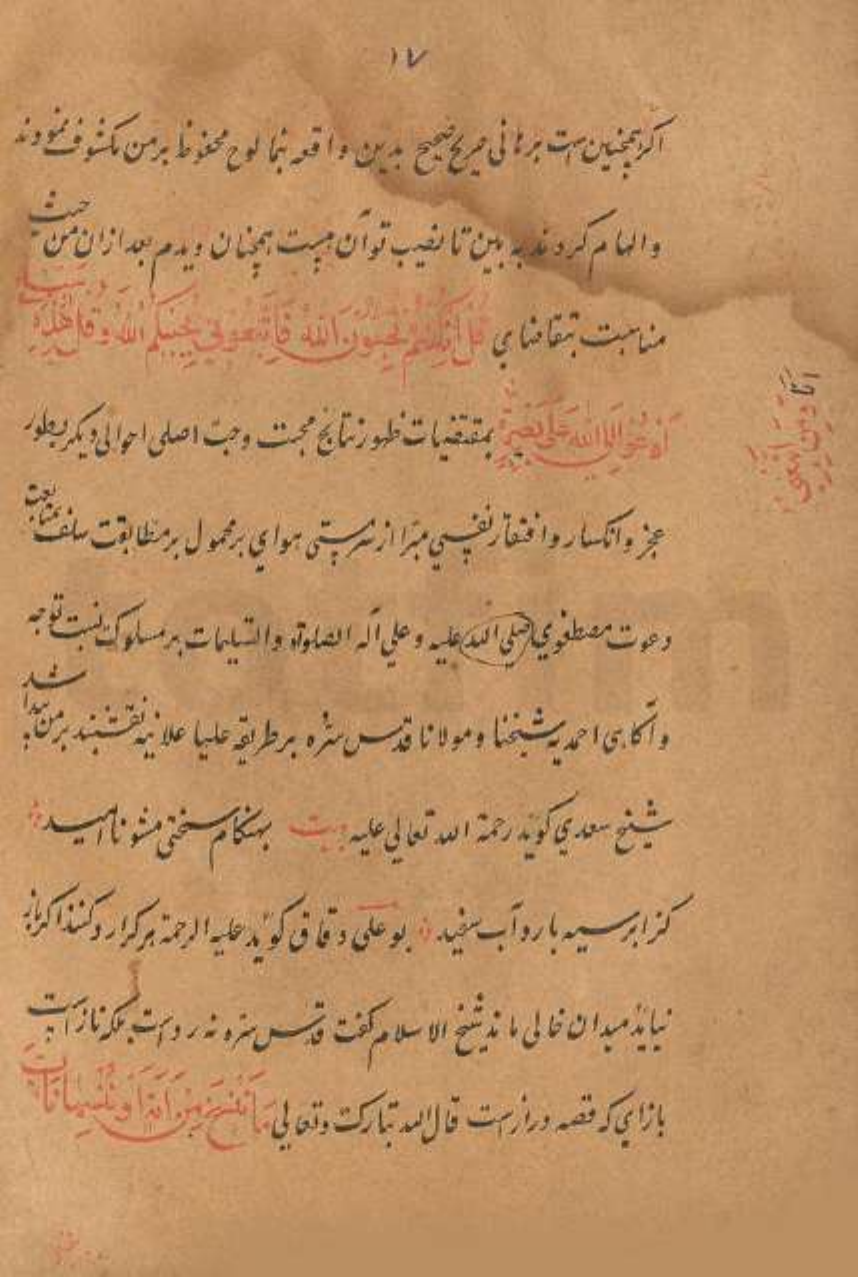 ۱۷
اکر همچنین است برهانی صریح صحیح بدین واقعه بنما لوح محفوظ بر من مکشوف نمودند
و الهام کردند به بین تا نصیب تو آن هست همچنان دیدم بعد ازان من حیث
مناسبت بتقاضای قُل اِنکُنتُم تُحِبّونَ اَللهَ فَاتَّبَعُونی یُحبِبکُم اللهُ وَ قُل هٰذِهِ سَبیلی
اَدعُوا اِلَی اللهِ عَلی بَصیرَةٍ بمقتضیات ظهور نتایج محبت و حبّ اصلی احوالی دیکر بطور
اَنَا وَ مَنِ اتَّبَعَنی
عجز و انکسار و افتقار نفسی مبرّا از سرمستی هوای بر محمول بر مطابقت سلف بمتابعت
دعوت مصطفوی صلی الله علیه و علی آله الصلوة و التسلیمات بر مسلوک نسبت توجه
و آکاهی احمدیه شیخنا و مولانا قدس سرّه بر طریقه علیا علانیه نقشبند بر من پیدا شد
شیخ سعدی کوید رحمة الله تعالی علیه بیت بهنکام سختی مشو ناامید
کز ابر سیه بارد آب سفید بو علی دقاق کوید علیه الرحمة هر کرا رد کنند اکر باز
نیاید میدان خالی ماند شیخ الاسلام کفت قدس سره نه رد است بلکه ناز است
باز ای که قصه دراز است قال الله تبارک و تعالی مَا نَنسَخ مِن اٰیَةٍ اَو نُنسِهَا نَأتِ